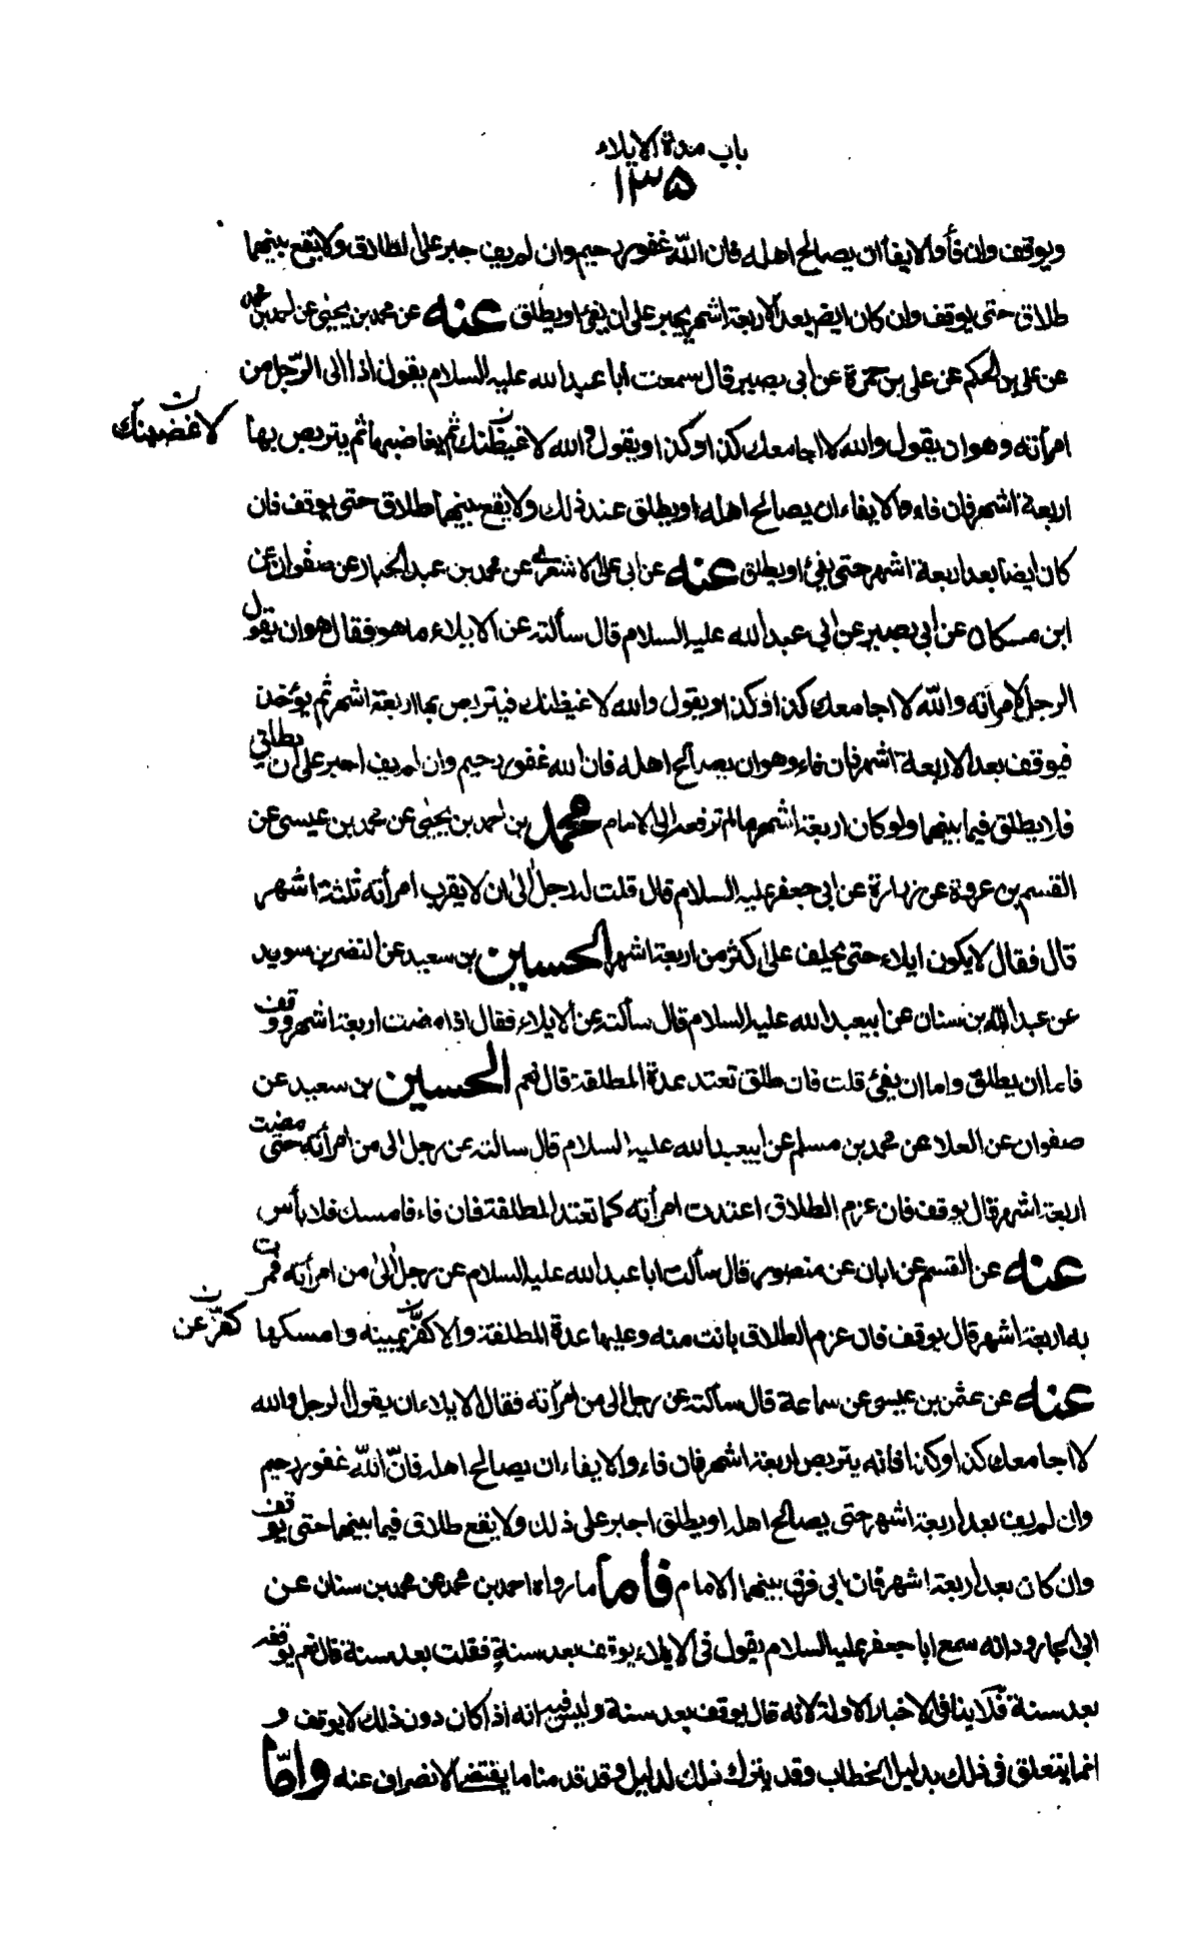 باب مدة الايلاء
١٣٥
ويوقف وان فاء والايفاء ان يصالح اهله فان الله غفور رحيم وان لم يف جبر على الطلاق ولا يقع بينهما
طلاق حتى يوقف وان كان ايض بعد الاربعة اشهر يجبر على ان يفئ او يطلق عنه عن محمد بن يحيى عن احمد بن محمد
عن على بن الحكم عن على بن حمزة عن ابى بصير قال سمعت ابا عبد الله عليه السلام يقول اذا الى الرجل من
امرأته وهو ان يقول والله لا اجامعك كذا وكذا او يقول والله لاغيظنك ثم يغاضبها ثم يتربص بها
لاغضبنك ن
اربعة اشهر فان فاء والايفاء ان يصالح اهله او يطلق عند ذلك ولا يقع بينهما طلاق حتى يوقف فان
كان ايضا بعد اربعة اشهر حتى يفئ او يطلق عنه عن ابى على الاشعرى عن محمد بن عبد الجبار عن صفوان عن
ابن مسكان عن ابى بصير عن ابى عبد الله عليه السلام قال سألته عن الايلاء ما هو فقال هو ان يقول
الرجل لامرأته والله لا اجامعك كذا وكذا او يقول والله لاغيظنك فيتربص بها اربعة اشهر ثم يؤخذ
فيوقف بعد الاربعة اشهر فان فاء وهو ان يصالح اهله فان الله غفور رحيم وان لم يف اجبر على ان يطلق
فلا يطلق فيما بينهما ولو كان اربعة اشهر ما لم ترفعه الى الامام محمد بن احمد بن يحيى عن محمد بن عيسى عن
القسم بن عروة عن زرارة عن ابى جعفر عليه السلام قال قلت له رجل الى ان لا يقرب امرأته ثلثة اشهر
قال فقال لا يكون ايلاء حتى يحلف على اكثر من اربعة اشهر الحسين بن سعيد عن النضر بن سويد
عن عبد الله بن سنان عن ابيعبد الله عليه السلام قال سألته عن الايلاء فقال اذا مضت اربعة اشهر ووقف
فاما ان يطلق واما ان يفئ قلت فان طلق تعتد عدة المطلقة قال نعم الحسين بن سعيد عن
صفوان عن العلا عن محمد بن مسلم عن ابيعبد الله عليه السلام قال سالته عن رجل الى من امرأته حتى مضت
اربعة اشهر قال يوقف فان عزم الطلاق اعتدت امرأته كما تعتد المطلقة فان فاء فامسك فلا بأس
عنه عن القسم عن ابان عن منصور قال سألت ابا عبد الله عليه السلام عن رجل الى من امرأته فمرت
به اربعة اشهر قال يوقف فان عزم الطلاق بانت منه وعليها عدة المطلقة والا كفر يمينه وامسكها
كفر عن ن
عنه عن عثمن بن عيسى عن سماعة قال سألته عن رجل الى من امرأته فقال الايلاء ان يقول الرجل والله
لا اجامعك كذا وكذا فانه يتربص اربعة اشهر فان فاء والايفاء ان يصالح اهله فان الله غفور رحيم
وان لم يف بعد اربعة اشهر حتى يصالح اهله او يطلق اجبر على ذلك ولا يقع طلاق فيما بينهما حتى يوقف
وان كان بعد اربعة اشهر فان ابى فرق بينهما الامام فأما ما رواه احمد بن محمد عن محمد بن سنان عن
ابى الجارود انه سمع ابا جعفر عليه السلام يقول فى الايلاء يوقف بعد سنة فقلت بعد سنة قال نعم يوقف
بعد سنة فلا ينافى الاخبار الاولة لانه قال يوقف بعد سنة وليس فيه انه اذا كان دون ذلك لا يوقف و
انما يتعلق فى ذلك بدليل الخطاب وقد يترك ذلك لدليل وقد قدمنا ما يقتضى الانصراف عنه واما